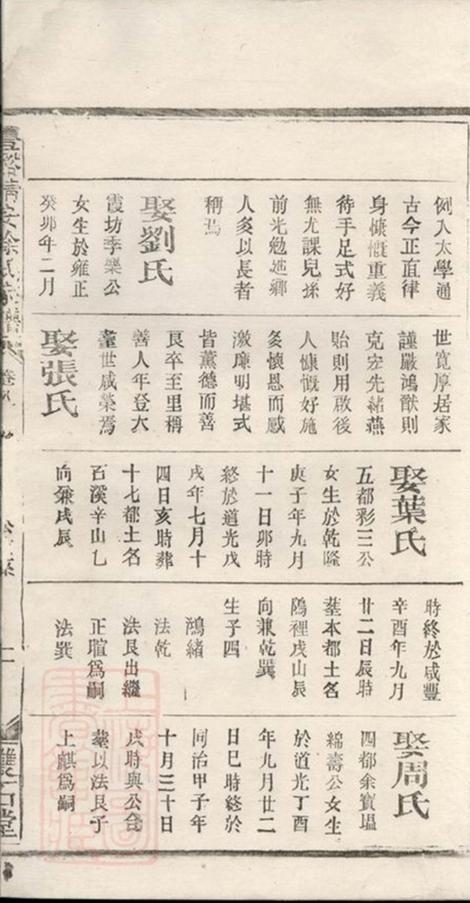 例入太學通
古今正直律
身慷慨重義
待手足式好
無尤課兒孫
前光勉述鄉
人多以長者
稱焉
娶劉氏
霞坊李樂公
女生於雍正
癸卯年二月
世寬厚居家
謹嚴鴻猷則
克宏先緒燕
貽則用啟後
人慷慨好施
多懷恩而感
激廉明堪式
皆薰德而善
良卒至里稱
善人年登大
耋世咸榮焉
娶張氏
娶葉氏
五都彩三公
女生於乾隆
庚子年九月
十一日卯時
終於道光戊
戌年七月十
四日亥時葬
十七都土名
石溪辛山乙
向兼戌辰
時終於咸豐
辛酉年九月
廿二日辰時
塟本都土名
隝裡戌山辰
向兼乾巽
生子四
鴻緒
法乾
法良出繼
正瑄為嗣
法巽
娶周氏
四都余寶塭
綿壽公女生
於道光丁酉
年九月廿二
日巳時終於
同治甲子年
十月三十日
戌時與公合
塟以法良子
上麒為嗣
徐氏宗譜
卷
雙石堂